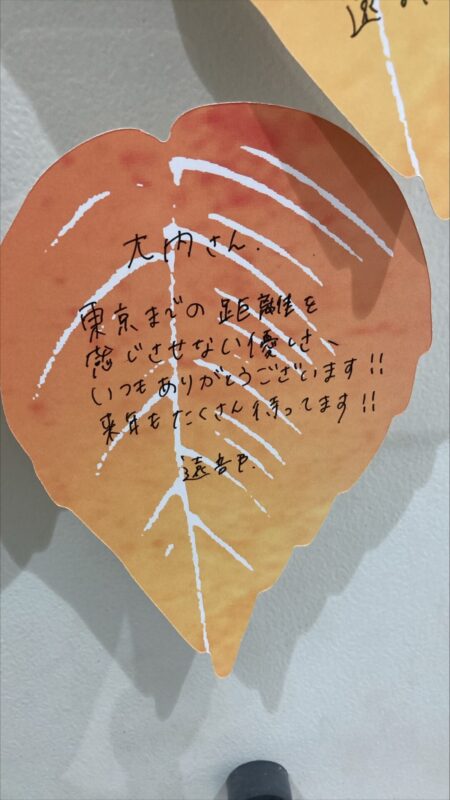 大内さん.
東京までの距離を
感じさせない優しさ、
いつもありがとうございます!!
来年もたくさん待ってます!!